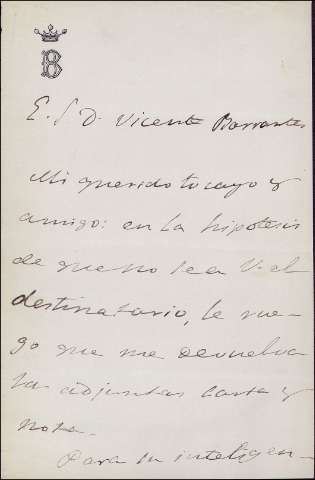 B
E. S. D. Vicente Barrantes
Mi querido tocayo y
amigo: en la hipotesis
de que no sea V. el
destinatario, le rue-
go que me devuelva
las adjuntas carta y
nota.
Para su inteligen-